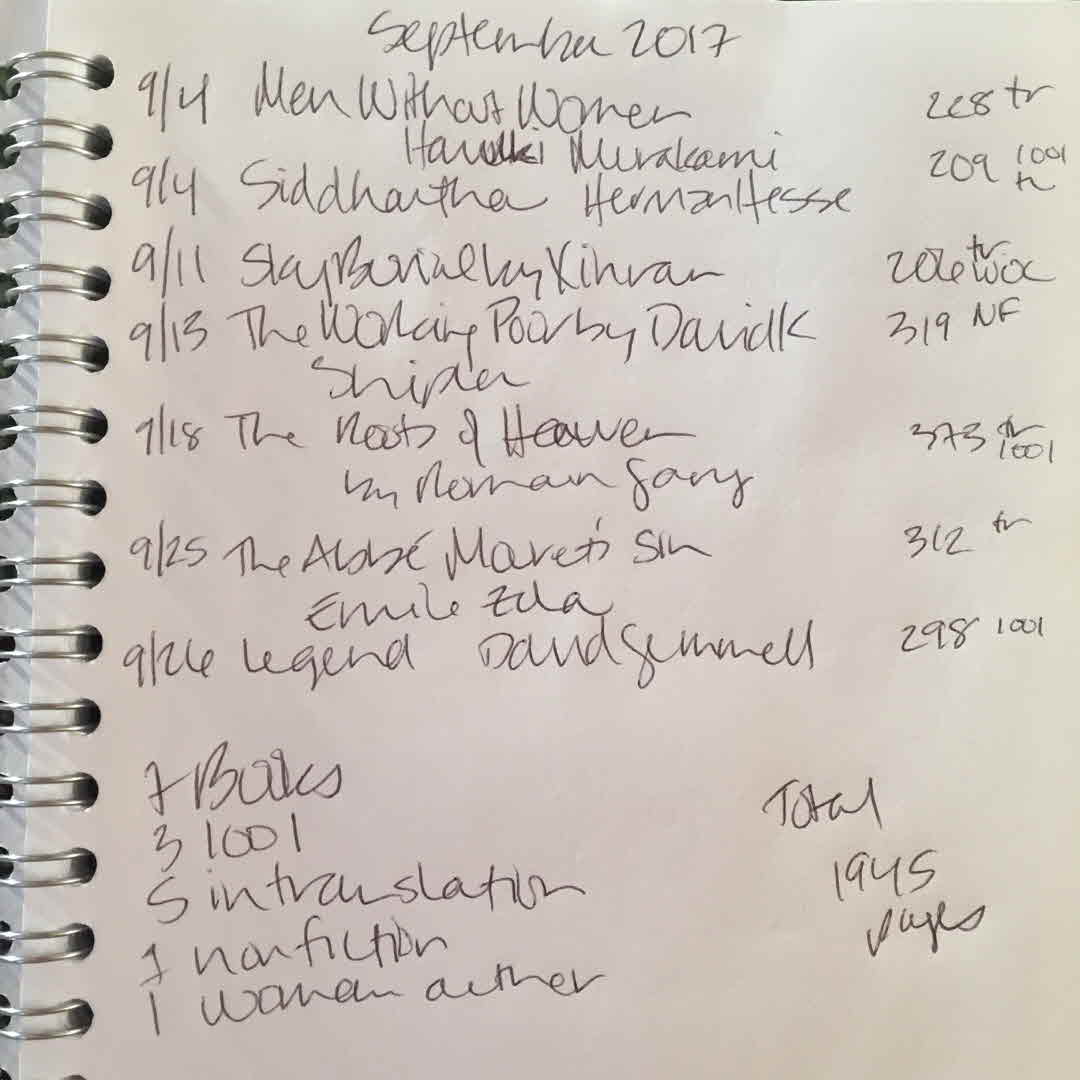 September 2017
9/4 Men Without Women 228 tr
Haruki Murakami
9/4 Siddhartha Herman Hesse 209 1001 tr
9/11 Sky Burial by Xinran 206 tr woc
9/13 The Working Poor by David K 319 NF
Shipler
9/18 The Roots of Heaven 373 tr 1001
by Romain Gary
9/25 The Abbé Mouret's Sin 312 tr
Emile Zola
9/26 Legend David Gemmell 298 1001
7 Books
3 1001
5 in translation
1 nonfiction
1 woman author
Total
1945
pages